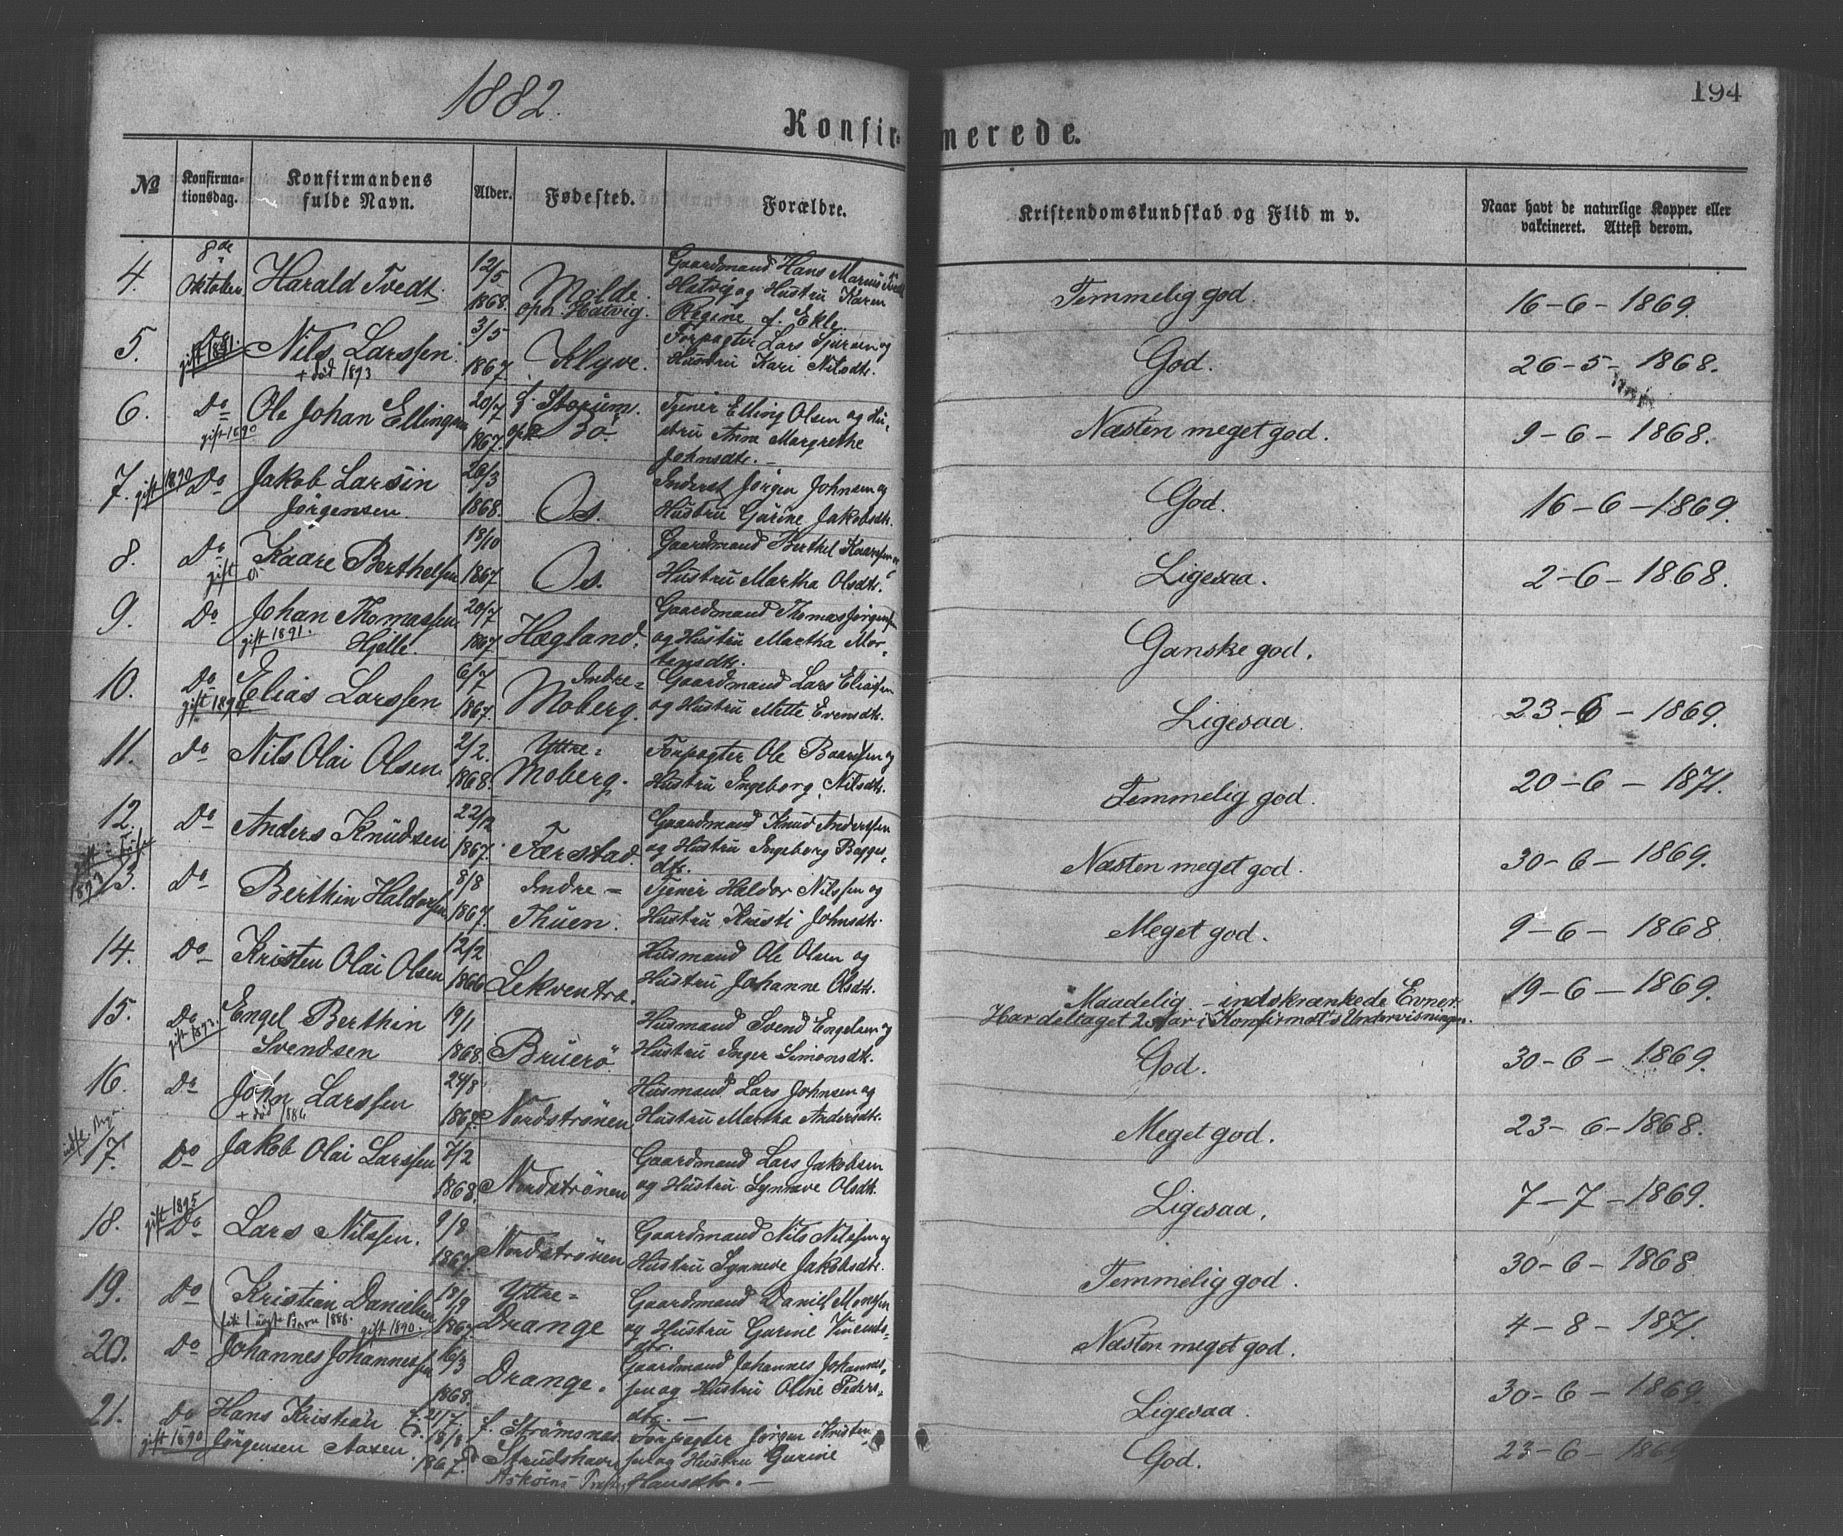 1882.
194
Konfir-
merede.
No
Konfirma-
tionsdag.
Konfirmandens
fulde Navn.
Alder.
Fødested.
Forældre.
Kristendomskundskab og Flid m v.
Naar havt de naturlige Kopper eller
vakcineret. Attest derom.
4. 8de Oktober Harald Tvedt. 12/5 1868. Molde. oph. Hatvig. Gaardmand Hans Marius Tvedt
Hatvig og Hustru Karen
Regine f. Ekle. Temmelig god. 16-6-1869.
5. Do gift 1891. Nils Larssen. + død 1893 3/5 1867. Klyve. Forpagter Lars Sjursen og
Hustru Kari Nilsdtr. God. 26-5-1868.
6. Do gift 1890 Ole Johan Ellingsen 20/7 1867. Tjener Elling Olsen og Hu-
stru Anna Margrethe
Johnsdtr. Næsten meget god. 9-6-1868.
7. gift 1890 Do Jakob Larsin
Jørgensen. 26/3 1868. Os. Inderst Jørgen Johnsen og
Hustru Gurine Jakobsdtr. God. 16-6-1869.
8. Do gift Kaare Berthelsen 18/10 1867. Os. Gaardmand Berthel Kaaresen og
Hustru Martha Olsdtr. Ligesaa. 2-6-1868.
9. Do Johan Thomassen
gift 1891. Hjelle. 20/7 1867. Hægland. Gaardmand Thomas Jørgensen
og Hustru Martha Mor-
tensdtr. Ganske god.
10. Do gift 1890. Elias Larssen 6/7 1867. Indre-
Moberg. Gaardmand Lars Eliassen
og Hustru Mette Evensdtr. Ligesaa. 23-6-1869.
11. Do Nils Olai Olsen 2/2. 1868. Yttre-
Moberg. Forpagter Ole Baardsen og
Hustru Ingeborg Nilsdtr. Temmelig god. 20-6-1871.
12. Do Anders Knudsen 22/12 1867. Færstad. Gaardmand Knud Anderssen
og Hustru Ingeborg Bagges-
dtr. Næsten meget god. 30-6-1869.
1893
13. Do Berthin Haldorsen 8/8 1867. Indre-
Thuen. Tjener Haldor Nilssen og
Hustru Kristi Johnsdtr. Meget god. 9-6-1868.
14. Do Kristen Olai Olsen 12/2 1866 Lekventræ. Husmand Ole Olsen og
Hustru Johanne Olsdtr. Maadelig - indskrænkede Evner.
Har deltaget 2 Aar i Konfirmat's Undervisningen. 19-6-1869.
15. Do gift 1893. Engel Berthin
Svendsen 19/1 1868. Bruerö Husmand Svend Engelsen og
Hustru Inger Simonsdtr. God. 30-6-1869.
16. Do John Larssen
+ død 1886 24/8 1867. Nordströnen Husmand Lars Johnsen og
Hustru Martha Andersdtr. Meget god. 23-6-1868.
17. Do Jakob Olai Larssen 7/2 1868. Nordströnen Gaardmand Lars Jakobsen
og Hustru Synneve Olsdtr. Ligesaa. 7-7-1869.
18. gift 1895 Do Lars Nilssen. 9/8 1867. Nordströnen Gaardmand Nils Nilssen og
Hustru Synneve Jakobsdtr. Temmelig god. 30-6-1868
19. Do Kristian Danielsen
fik 1 uægte Barn 1888. gift 1890. 18/9 1867 Yttre-
Drange Gaardmand Daniel Monsen
og Hustru Gurine Vincents-
dtr. Næsten meget god. 4-8-1871.
20. Do Johannes Johannessen 16/3 1868. Drange. Gaardmand Johannes Johannes-
sen og Hustru Oline Peders-
dtr. Ligesaa. 30-6-1869.
21. Do gift 1890 Hans Kristian
Jørgensen Aasen. f. 21/7. 1867. f. Strömsnes
Strudshavn
Askøens Forpagter Jørgen Kristen-
sen og Hustru Gurine
Hansdtr. God. 23-6-1869